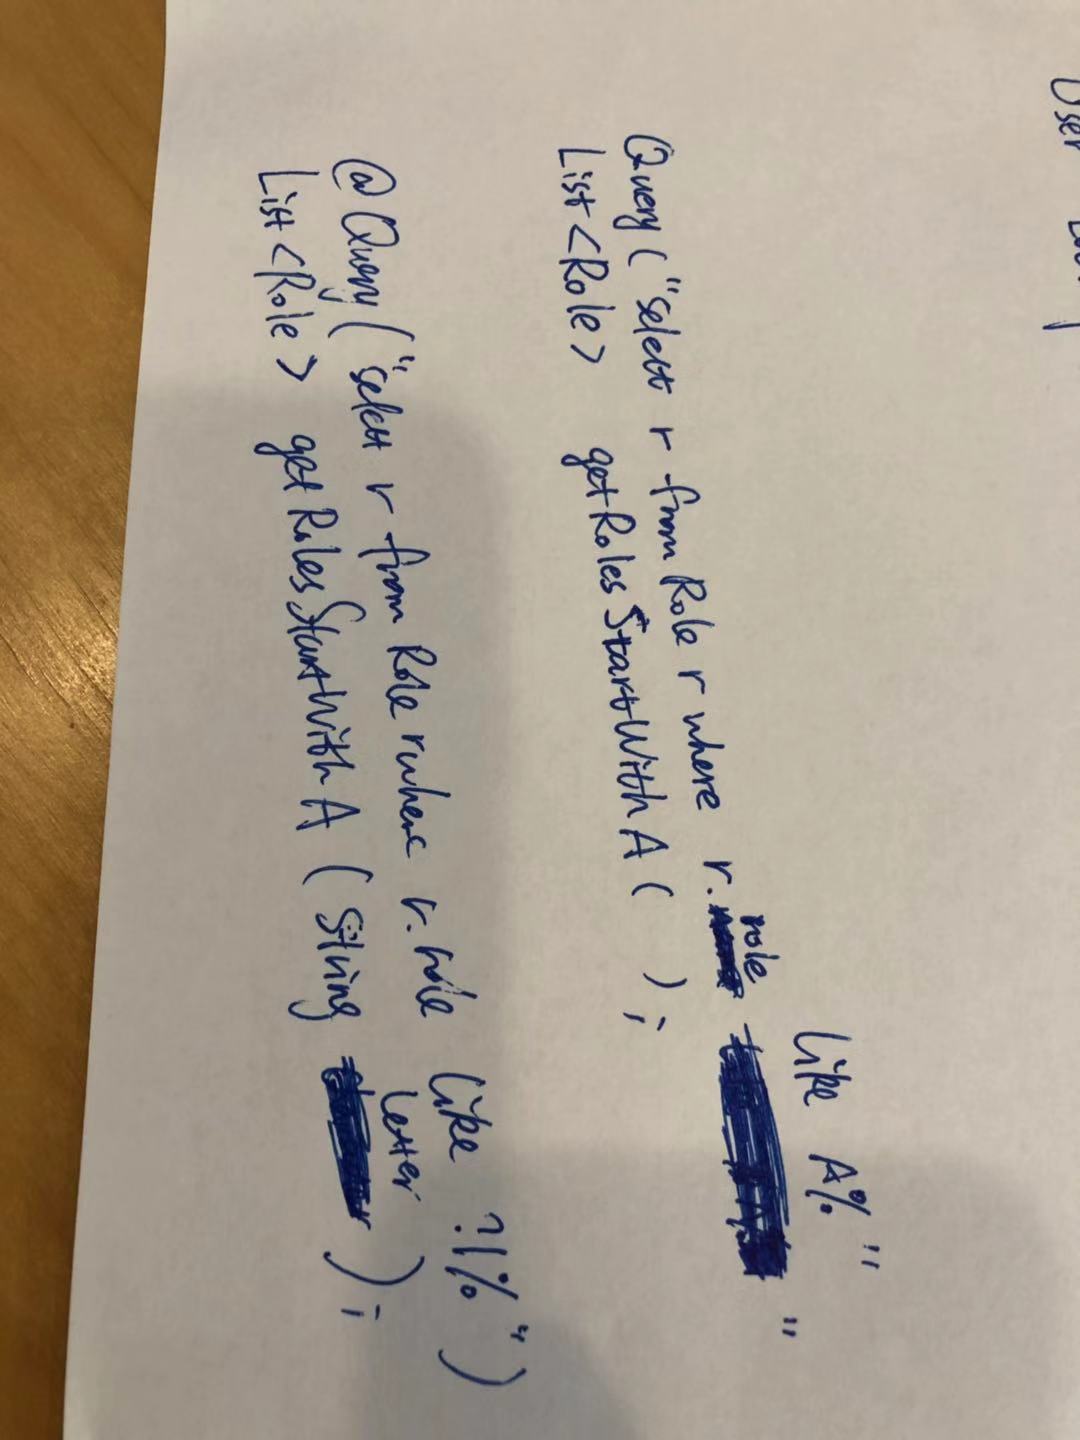 User
like A%"
Query("select r from Role r where r.role "
List<Role> getRolesStartWithA( );
@Query("select r from Role r where r.role like ?1%")
letter
List<Role> getRolesStartWithA(String );